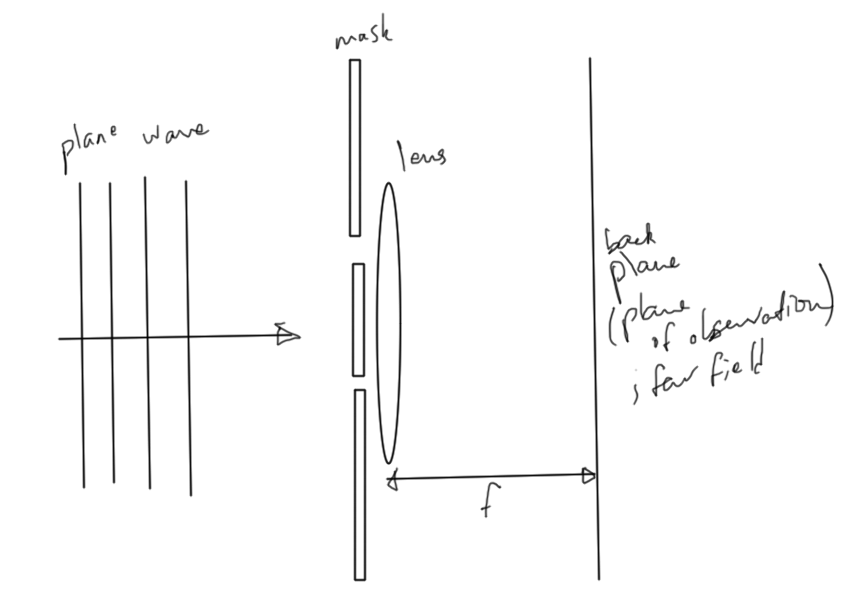 mask
plane wave
lens
back
plane
(plane
of observation)
; far field
f